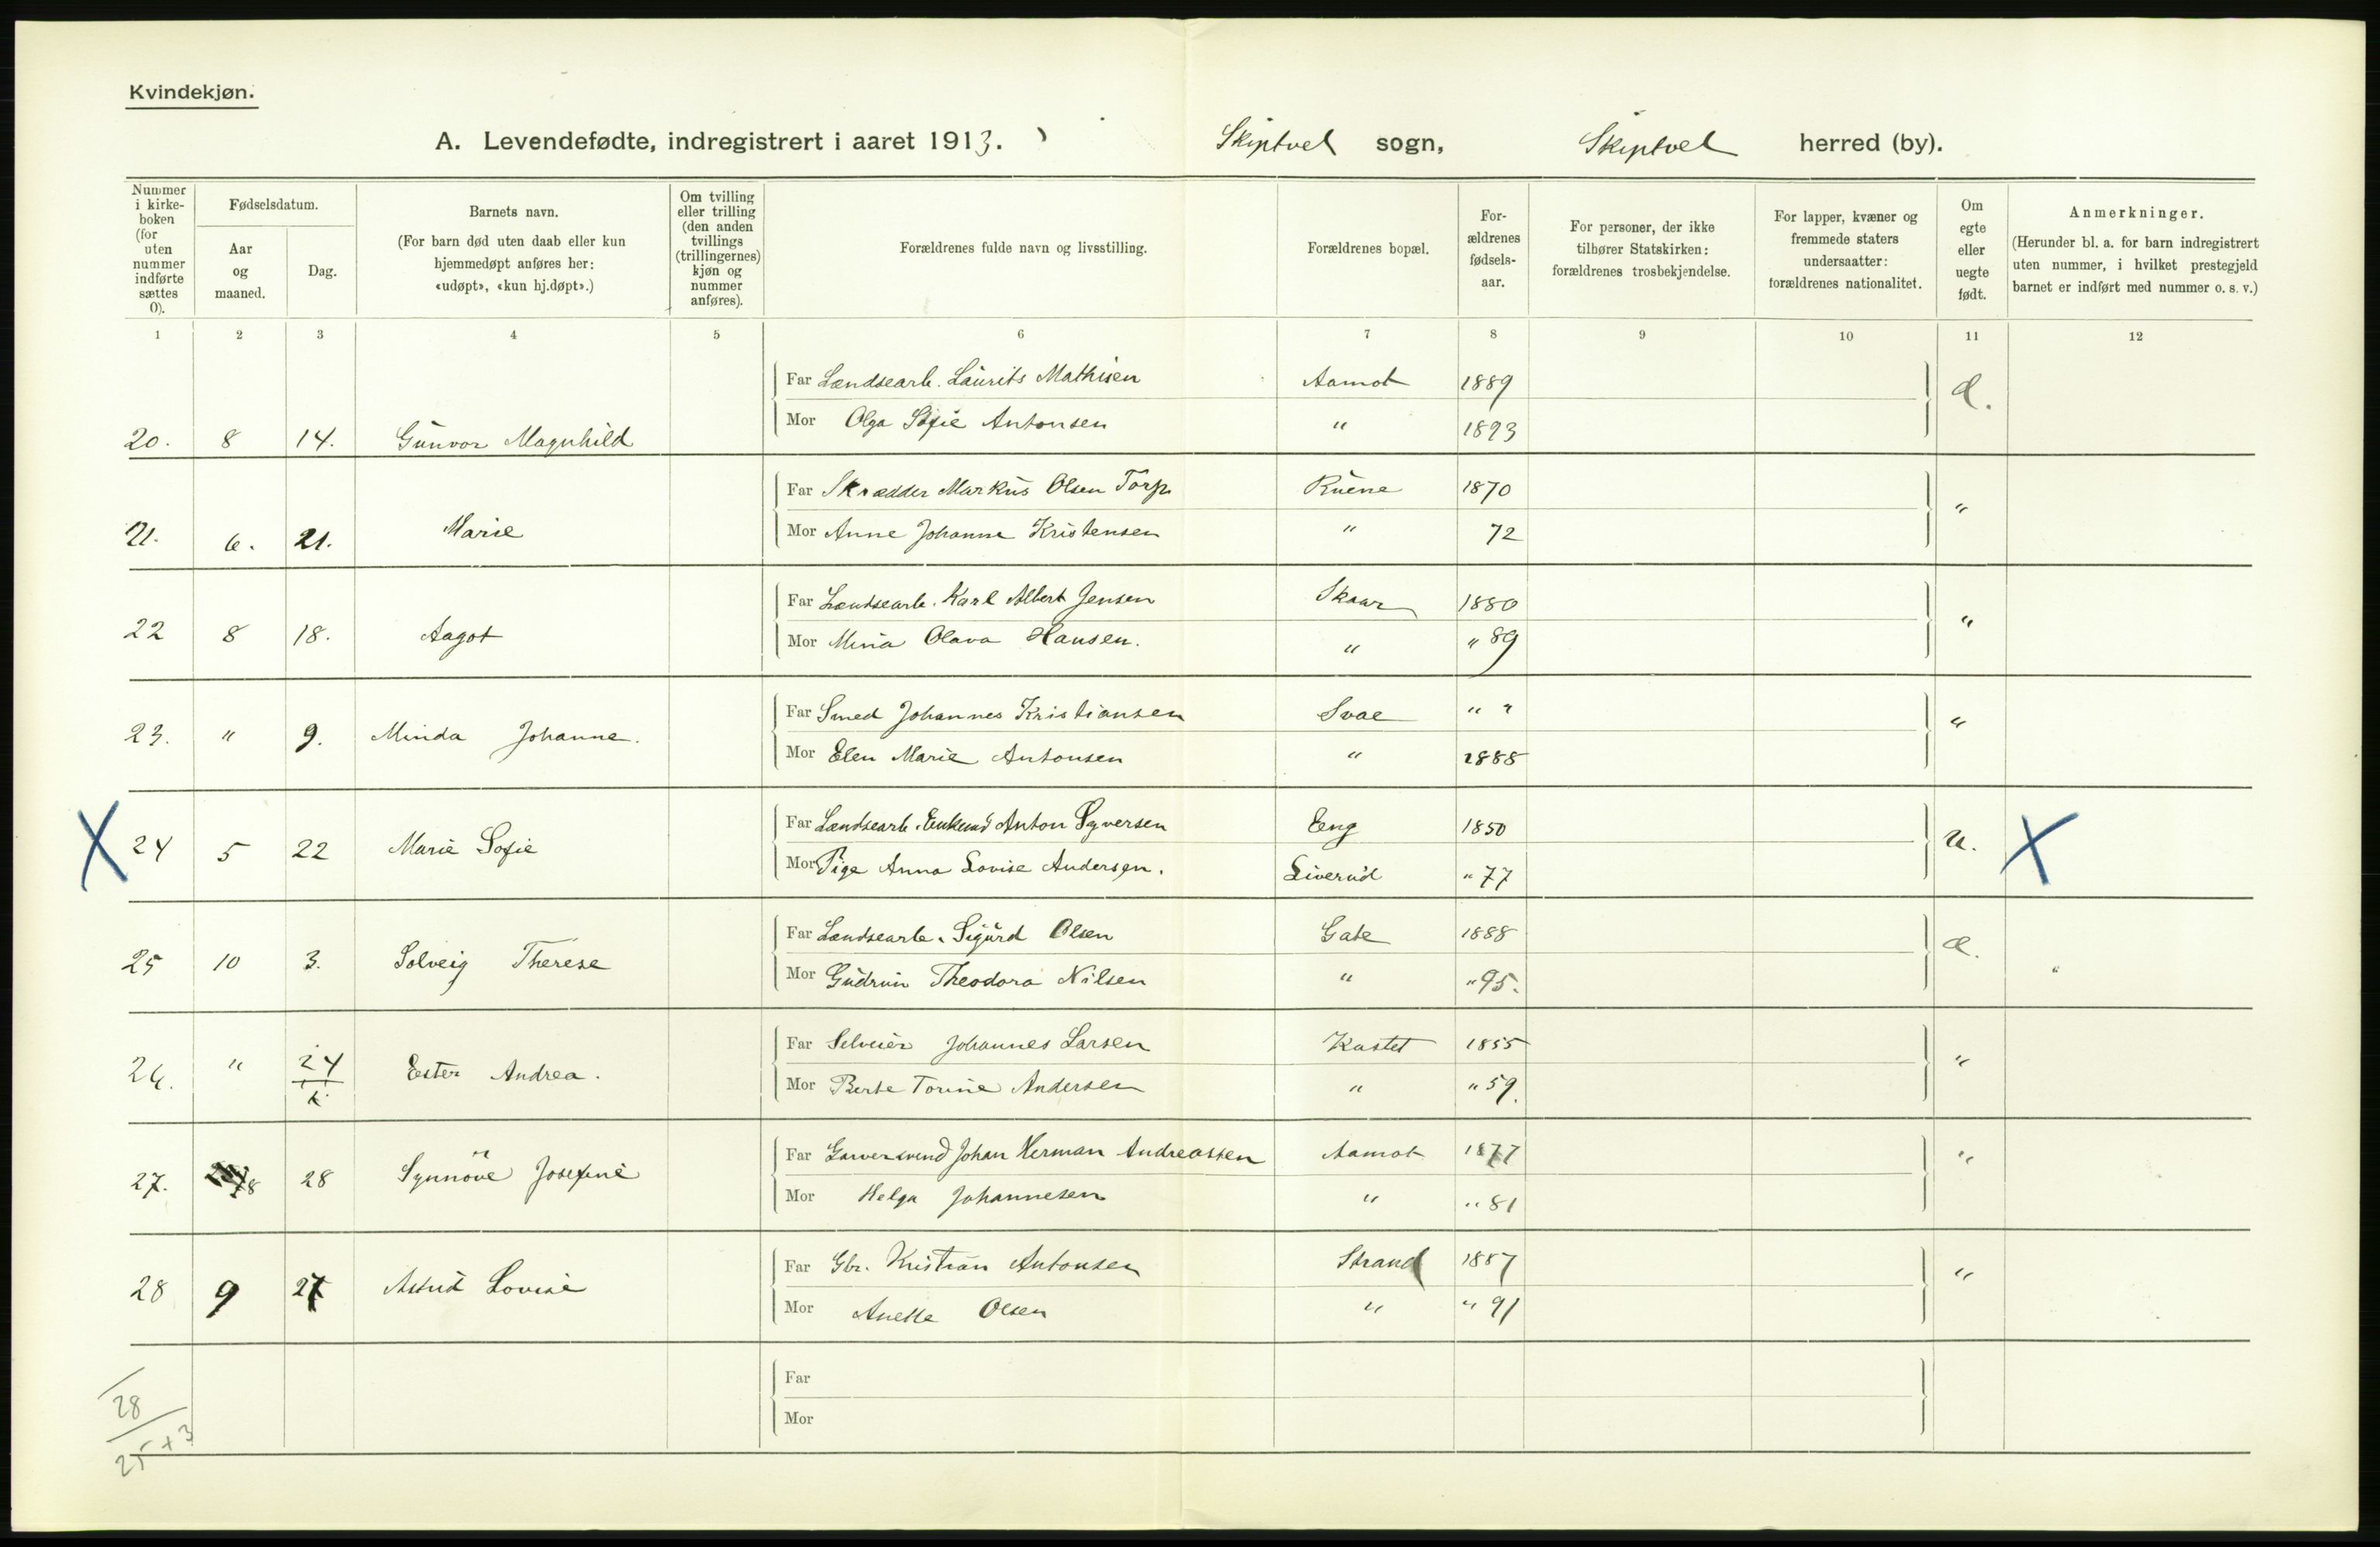 Kvindekjøn.
A. Levendefødte, indregistrert i aaret 1913. Skiptvet sogn, Skiptvet herred (by).
Nummer i kirke-boken (for uten nummer indførte sættes 0).
Fødselsdatum.
Aar og maaned.
Dag.
Barnets navn.
(For barn død uten daab eller kun hjemmedøpt anføres her: «udøpt», «kun hj.døpt».)
Om tvilling eller trilling (den anden tvillings (trillingernes) kjøn og nummer anføres).
Forældrenes fulde navn og livsstilling.
Forældrenes bopæl.
For-ældrenes fødsels-aar.
For personer, der ikke tilhører Statskirken: forældrenes trosbekjendelse.
For lapper, kvæner og fremmede staters undersaatter: forældrenes nationalitet.
Om egte eller uegte født.
Anmerkninger.
(Herunder bl. a. for barn indregistrert uten nummer, i hvilket prestegjeld barnet er indført med nummer o. s. v.)
1 2 3 4 5 6 7 8 9 10 11 12
Far Landsearb. Laurits Mathisen Aamot 1889
20. 8 14. Gunvor Magnhild Mor Olga Sofie Antonsen " 1893
Far Skrædder Markus Olsen Torp Ruene 1870 "
21. 6. 21. Marie Mor Anne Johanne Kristensen " 72
Far Landsearb. Karl Albert Jensen Skaar 1880 "
22 8 18. Aagot Mor Mina Olava Hansen. " " 89
Far Smed Johannes Kristiansen Svae " " "
23. " 9. Minda Johanne. Mor Elen Marie Antonsen " 1888
X Far Landsearb. Enkemd Anton Syversen Eng 1850 u. X
24 5 22 Marie Sofie Mor Pige Anna Lovise Andersen. Liverud " 77
Far Landsearb. Sigurd Olsen Gate 1888 e.
25 10 3. Solveig Therese Mor Gudrun Theodora Nilsen " " 95.
Far Selveier Johannes Larsen Kastet 1855 "
26. " 24 Ester Andrea. Mor Berte Torine Andersen " " 59.
Far Garversvend Johan Herman Andreassen Aamot 1877 "
27. 8 28 Synnöve Josefine Mor Helga Johannesen " " 81
Far Gbr. Kristian Antonsen Strand 1887 "
28 9 27 Astrid Lovise Mor Anette Olsen " " 91
Far
Mor
28
25 + 3